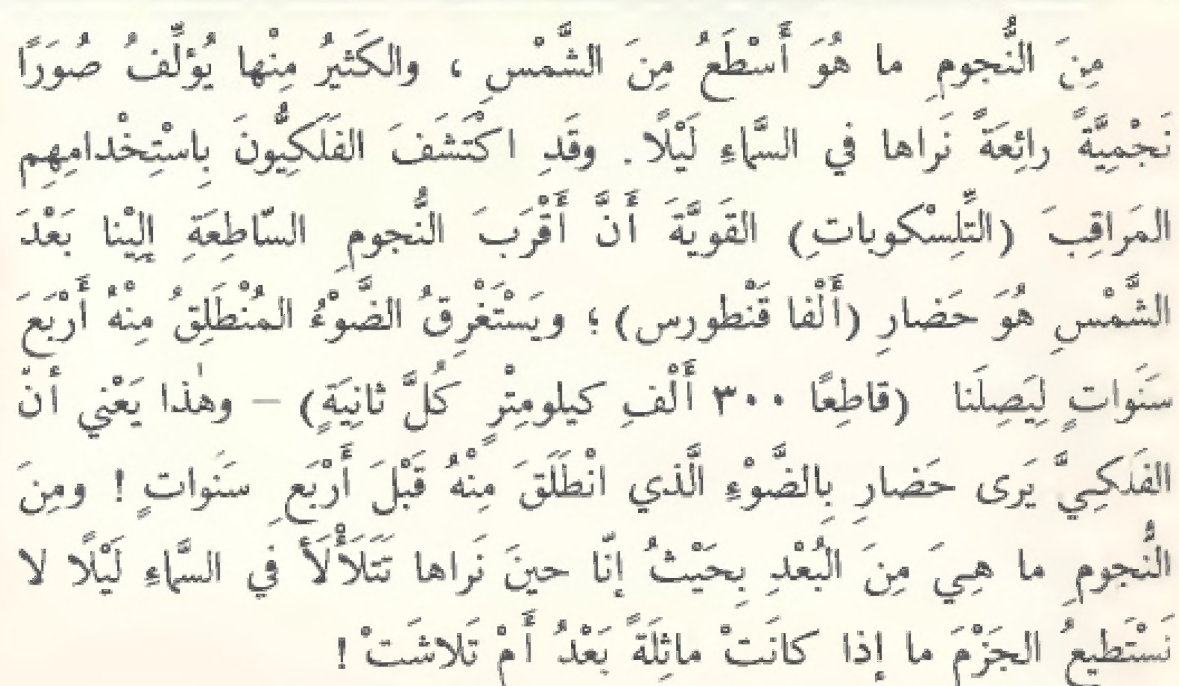 مِنَ النُّجومِ ما هُوَ أَسْطَعُ مِنَ الشَّمْسِ ، والكَثيرُ مِنْها يُؤلِّفُ صُوَرًا
نَجْمِيَّةً رائِعَةً نَراها في السَّماءِ لَيْلًا. وقَدِ اكْتَشَفَ الفَلَكِيُّونَ بِاسْتِخْدامِهِم
المَراقِبَ (التِّلِسْكوباتِ) القَوِيَّةَ أَنَّ أَقْرَبَ النُّجومِ السّاطِعَةِ إلَيْنا بَعْدَ
الشَّمْسِ هُوَ حَضارِ (أَلْفا قَنْطورس) ؛ ويَسْتَغْرِقُ الضَّوْءُ المُنْطَلِقُ مِنْهُ أَرْبَعَ
سَنَواتٍ لِيَصِلَنا (قاطِعًا ٣٠٠ أَلْفِ كيلومِتْرٍ كُلَّ ثانِيَةٍ) – وهٰذا يَعْني أنّ
الفَلَكِيَّ يَرَى حَضارِ بِالضَّوْءِ الَّذي انْطَلَقَ مِنْهُ قَبْلَ أَرْبَعِ سَنَواتٍ ! ومِنَ
النُّجومِ ما هِيَ مِنَ البُعْدِ بِحَيْثُ إنّا حينَ نَراها تَتَلَأْلَأُ في السَّماءِ لَيْلًا لا
نَسْتَطيعُ الجَزْمَ ما إذا كانَتْ ماثِلَةً بَعْدُ أَمْ تَلاشَتْ !